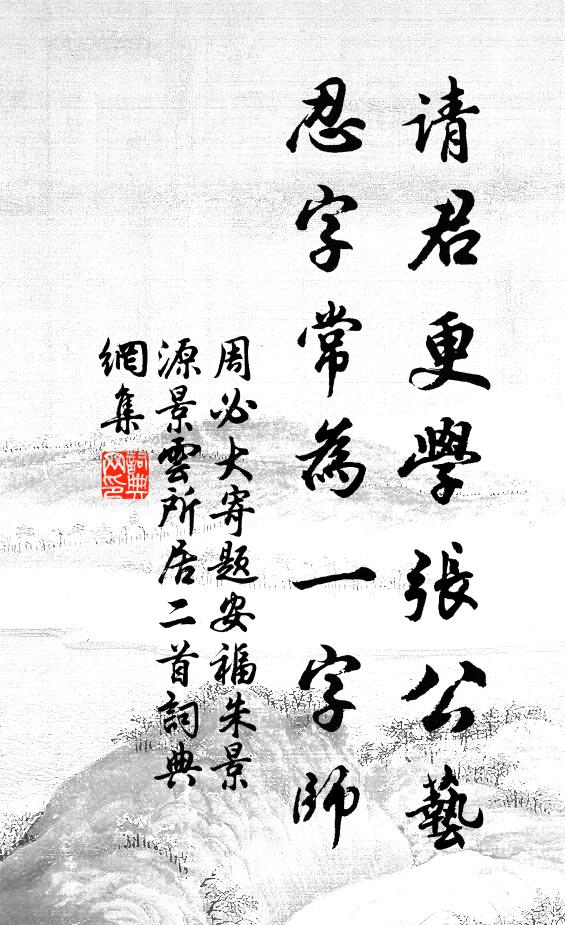 请君更學張公藝
忍字常為一字師
周必大寄題安福朱景
源景雲所居二首詞典
網集
詞典
网印